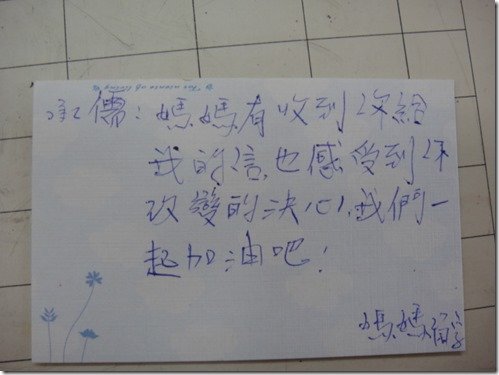 承儒：媽媽有收到你給
我的信,也感受到你
改變的決心,我們一
起加油吧！
媽媽留字